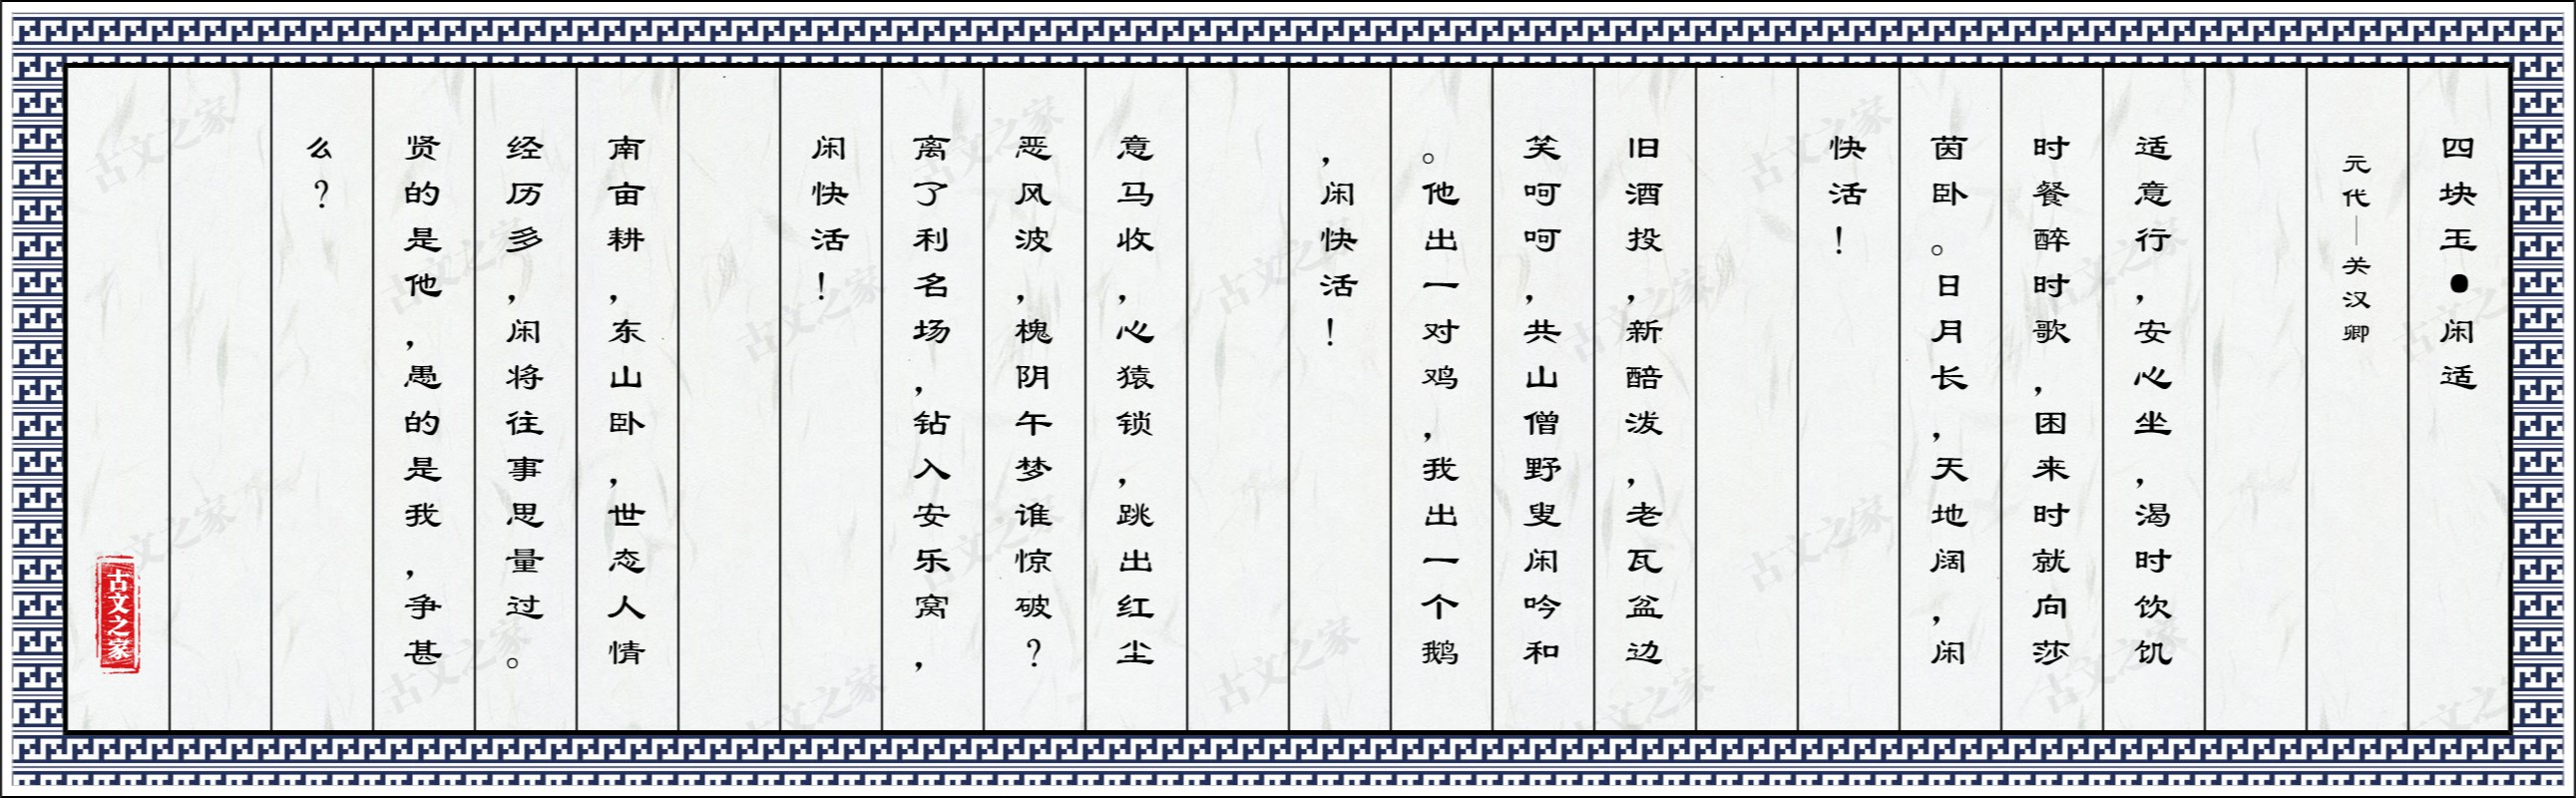 四块玉●闲适
元代—关汉卿
适意行，安心坐，渴时饮饥
时餐醉时歌，困来时就向莎
茵卧。日月长，天地阔，闲
快活！
旧酒投，新醅泼，老瓦盆边
笑呵呵，共山僧野叟闲吟和
。他出一对鸡，我出一个鹅
，闲快活！
意马收，心猿锁，跳出红尘
恶风波，槐阴午梦谁惊破？
离了利名场，钻入安乐窝，
闲快活！
南亩耕，东山卧，世态人情
经历多，闲将往事思量过。
贤的是他，愚的是我，争甚
么？
古文之家